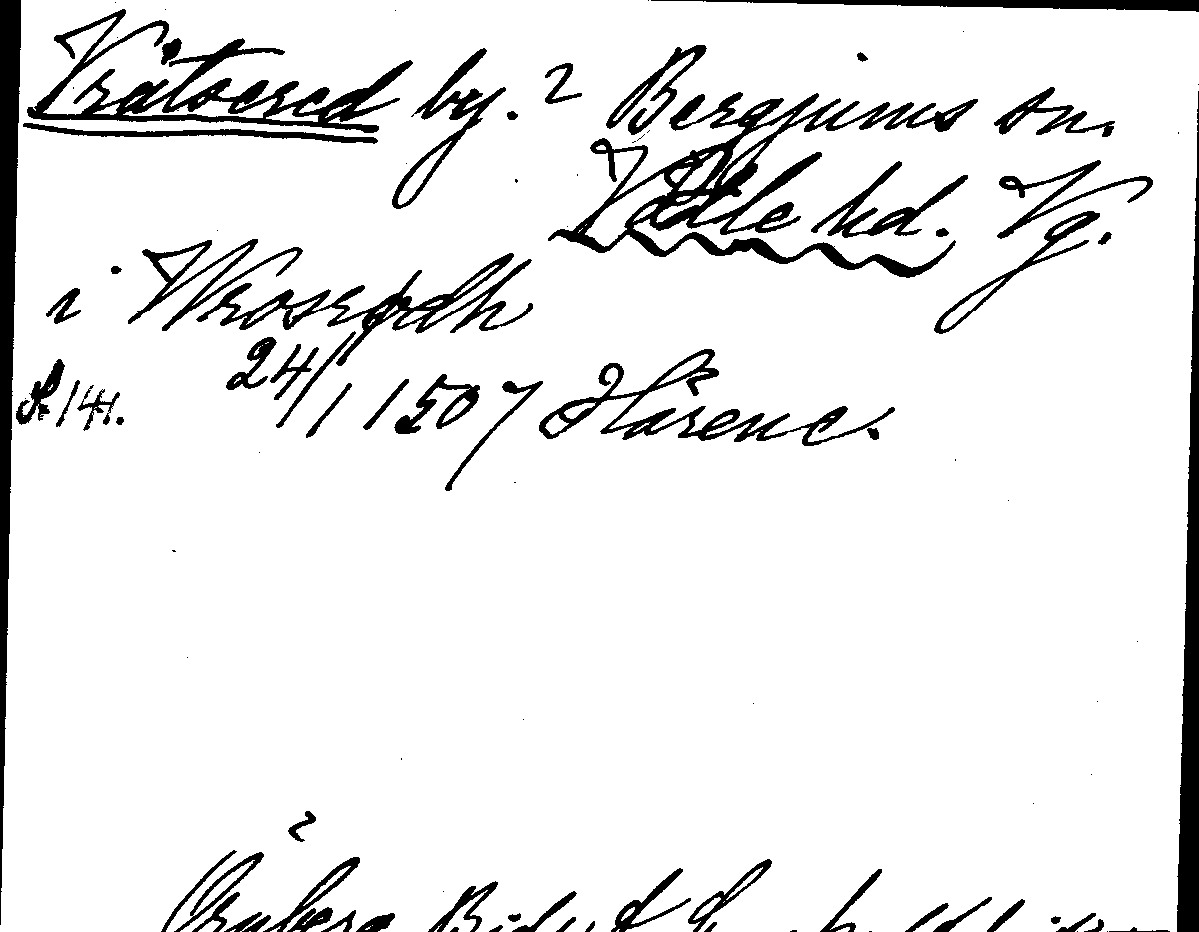 Vråtsered by. 2 Bergjums sn.
Vädle hd. Vg.
i Wroseredh
S. 141. 24/1 1507 Hårene.
2